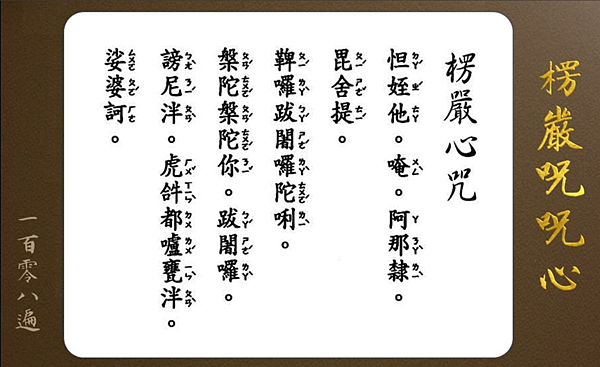 楞嚴呪呪心
楞嚴心咒
怛姪他。唵。阿那隸。
毘舍提。
鞞囉跋闍囉陀唎。
槃陀槃陀你。跋闍囉。
謗尼泮。虎𤙖都嚧甕泮。
娑婆訶。
一百零八遍